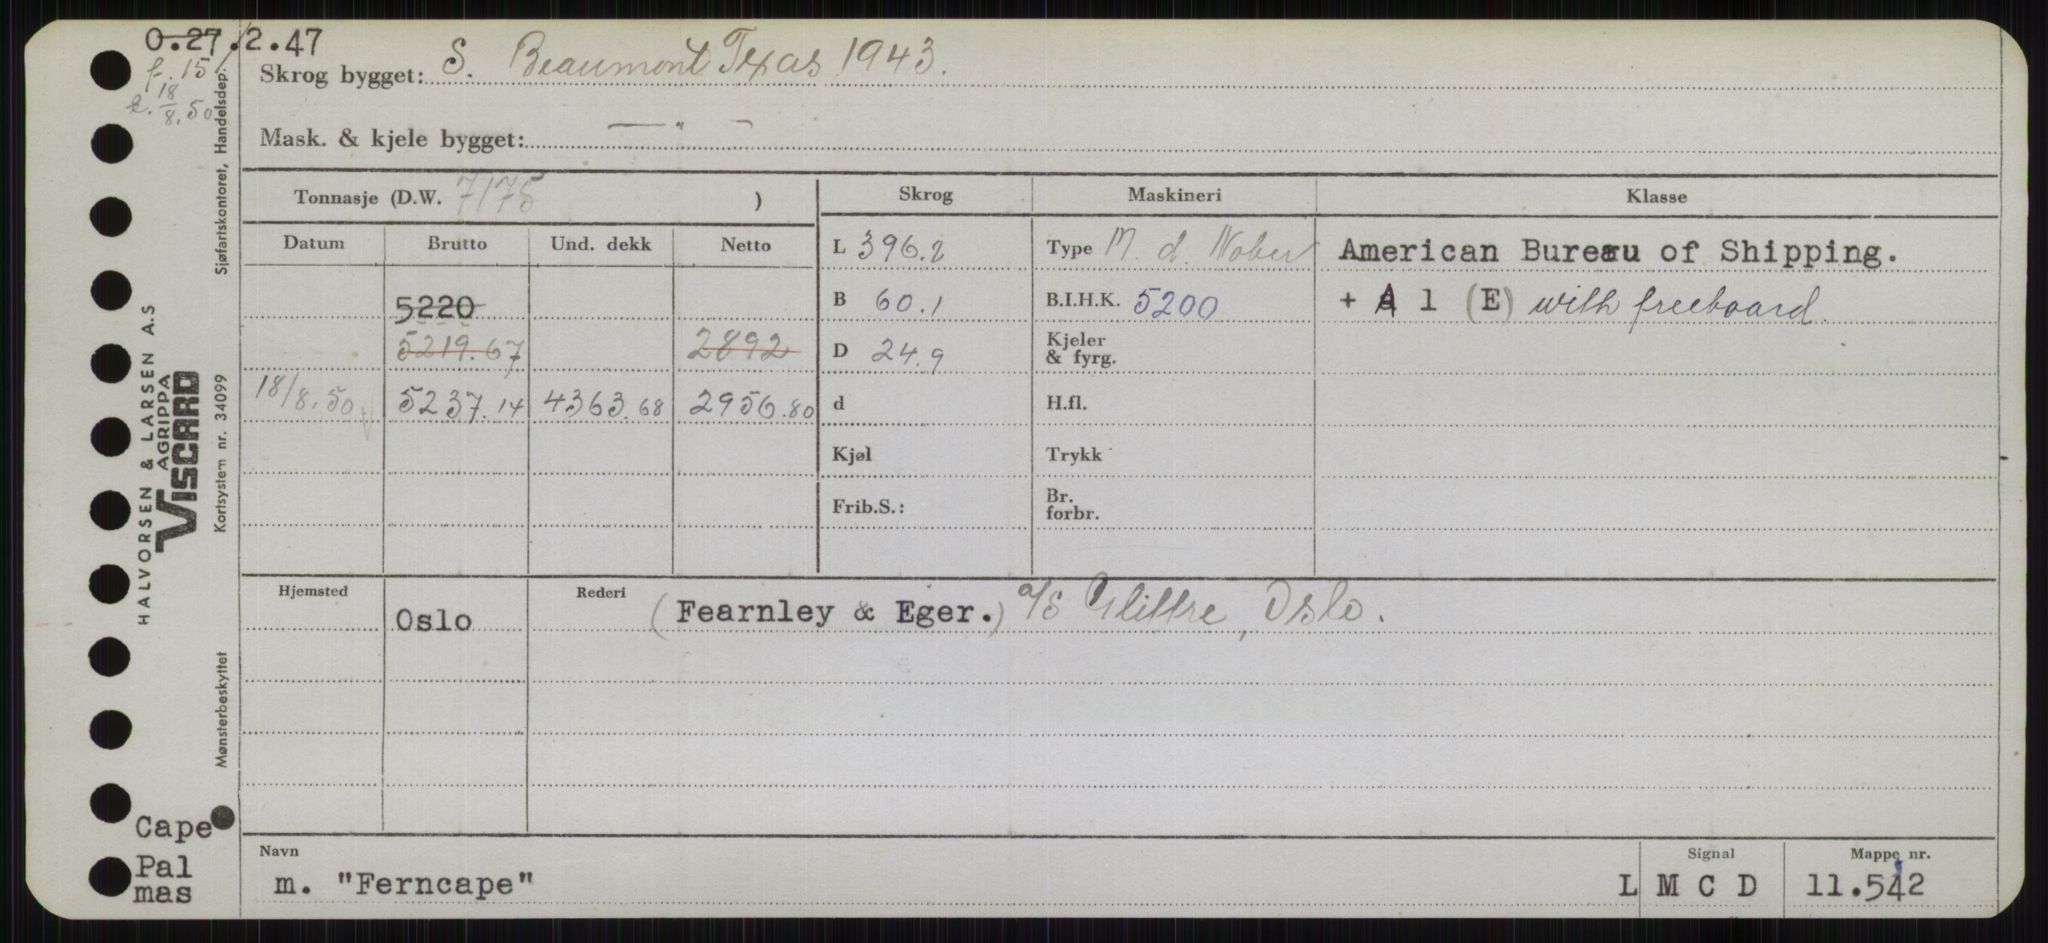 O.27.2.47
f. 15
18/8.50
Skrog bygget: S. Beaumont Texas 1943.
Mask. & kjele bygget: — " —
Tonnasje (D.W. 7175 )
Skrog Maskineri Klasse
Datum Brutto Und. dekk Netto
L 396.2 Type M. d. American Bureau of Shipping.
5220 B 60.1 B.I.H.K. 5200 + A 1 (E) with freeboard.
5219.67 2892 D 24.9 Kjeler & fyrg.
18/8.50 5237.14 4363.68 2956.80 d H.fl.
Kjøl Trykk
Frib.S.: Br. forbr.
Hjemsted Oslo Rederi (Fearnley & Eger.) a/s Glittre, Oslo.
Navn Signal Mappe nr.
m. "Ferncape" L M C D 11.542
Cape
Pal
mas
HALVORSEN & LARSEN A.S
AGRIPPA
VISCARD
Sjøfartskontoret, Handelsdep.
Kortsystem nr. 34099
Mønsterbeskyttet